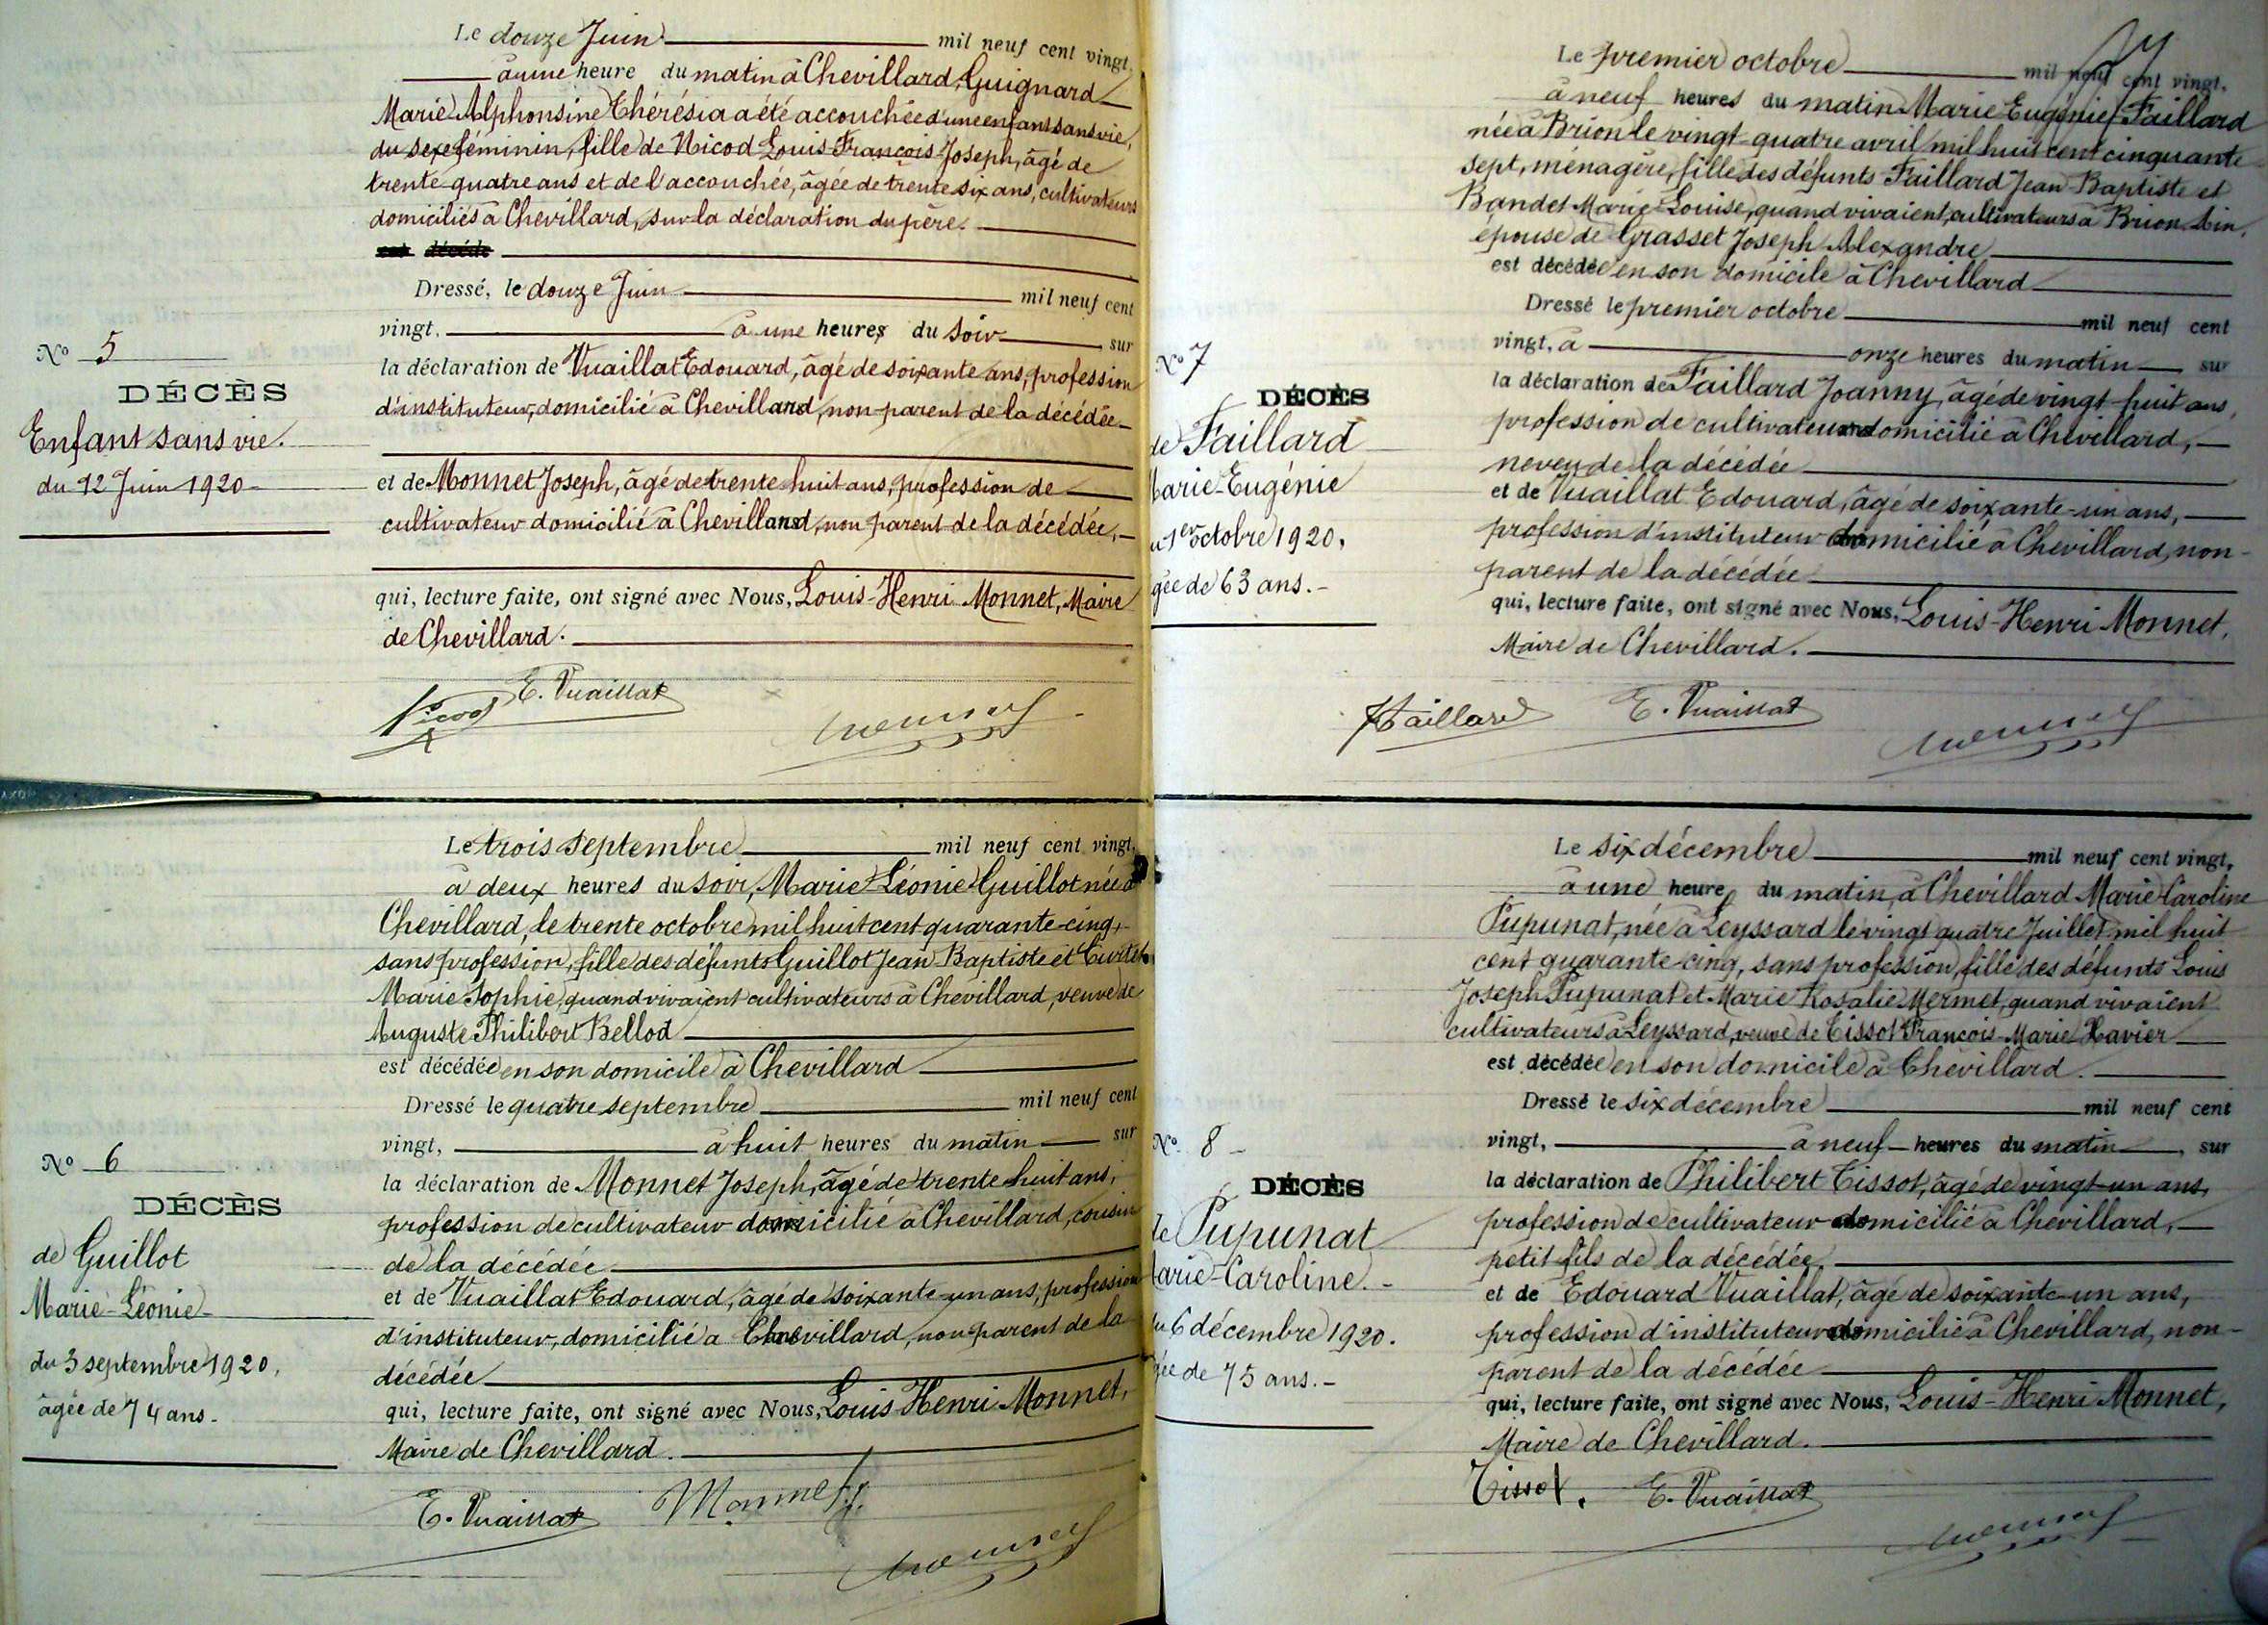 Le douze Juin mil neuf cent vingt,
à une heure du matin à Chevillard, Guignard
Marie Alphonsine Thérésia a été accouchée d'une enfant sans vie,
du sexe féminin, fille de Nicod Louis-François-Joseph, âgé de
trente-quatre ans et de l'accouchée, âgée de trente six ans, cultivateurs
domiciliés à Chevillard, sur la déclaration du père.
est décédé
Dressé, le douze Juin mil neuf cent
vingt, à une heures du soir, sur
N° 5
la déclaration de Vuaillat Edouard, âgé de soixante ans, profession
DÉCÈS
d'instituteur, domicilié à Chevillard, non-parent de la décédée
Enfant sans vie.
du 12 Juin 1920
et de Monnet Joseph, âgé de trente-huit ans, profession de
cultivateur domicilié à Chevillard, non parent de la décédée,
qui, lecture faite, ont signé avec Nous, Louis-Henri Monnet, Maire
de Chevillard.
Nicod E. Vuaillat Monnet
Le trois septembre mil neuf cent vingt,
à deux heures du soir, Marie-Léonie Guillot née à
Chevillard, le trente octobre mil huit cent quarante-cinq,
sans profession, fille des défunts Guillot Jean-Baptiste et Curtet
Marie Sophie, quand vivaient cultivateurs à Chevillard, veuve de
Auguste Philibert Bellod
est décédée en son domicile à Chevillard
Dressé le quatre septembre mil neuf cent
vingt, à huit heures du matin sur
N° 6
la déclaration de Monnet Joseph, âgé de trente-huit ans,
DÉCÈS
profession de cultivateur domicilié à Chevillard, cousin
de Guillot
de la décédée
Marie-Léonie
et de Vuaillat Edouard, âgé de soixante-un ans, profession
d'instituteur, domicilié à Chevillard, non-parent de la
du 3 septembre 1920,
décédée
âgée de 74 ans.
qui, lecture faite, ont signé avec Nous, Louis-Henri Monnet,
Maire de Chevillard.
E. Vuaillat Monnet J.
Monnet
Le premier octobre mil neuf cent vingt,
à neuf heures du matin Marie Eugénie Faillard
née à Brion le vingt-quatre avril mil huit cent cinquante
sept, ménagère, fille des défunts Faillard Jean-Baptiste et
Bandet Marie-Louise, quand vivaient, cultivateurs à Brion Ain,
épouse de Grasset Joseph Alexandre
est décédée en son domicile à Chevillard
Dressé le premier octobre mil neuf cent
vingt, à onze heures du matin sur
N° 7
la déclaration de Faillard Joanny, âgé de vingt-huit ans,
DÉCÈS
profession de cultivateur domicilié à Chevillard,
de Faillard
neveu de la décédée
Marie-Eugénie
et de Vuaillat Edouard, âgé de soixante-un ans,
du 1er octobre 1920,
profession d'instituteur domicilié à Chevillard, non-
âgée de 63 ans.
parent de la décédée
qui, lecture faite, ont signé avec Nous, Louis-Henri Monnet,
Maire de Chevillard.
Faillard E. Vuaillat Monnet
Le six décembre mil neuf cent vingt,
à une heure du matin, à Chevillard Marie Caroline
Pupunat, née à Leyssard le vingt quatre Juillet mil huit
cent quarante-cinq, sans profession, fille des défunts Louis
Joseph Pupunat et Marie Rosalie Mermet, quand vivaient
cultivateurs à Leyssard, veuve de Tissot François-Marie Xavier
est décédée en son domicile à Chevillard.
Dressé le six décembre mil neuf cent
vingt, à neuf heures du matin, sur
N° 8
la déclaration de Philibert Tissot, âgé de vingt-un ans,
DÉCÈS
profession de cultivateur domicilié à Chevillard,
de Pupunat
petit-fils de la décédée,
Marie-Caroline.
et de Edouard Vuaillat, âgé de soixante-un ans,
du 6 décembre 1920.
profession d'instituteur domicilié à Chevillard, non-
âgée de 75 ans.
parent de la décédée
qui, lecture faite, ont signé avec Nous, Louis-Henri Monnet,
Maire de Chevillard.
Tissot. E. Vuaillat
Monnet